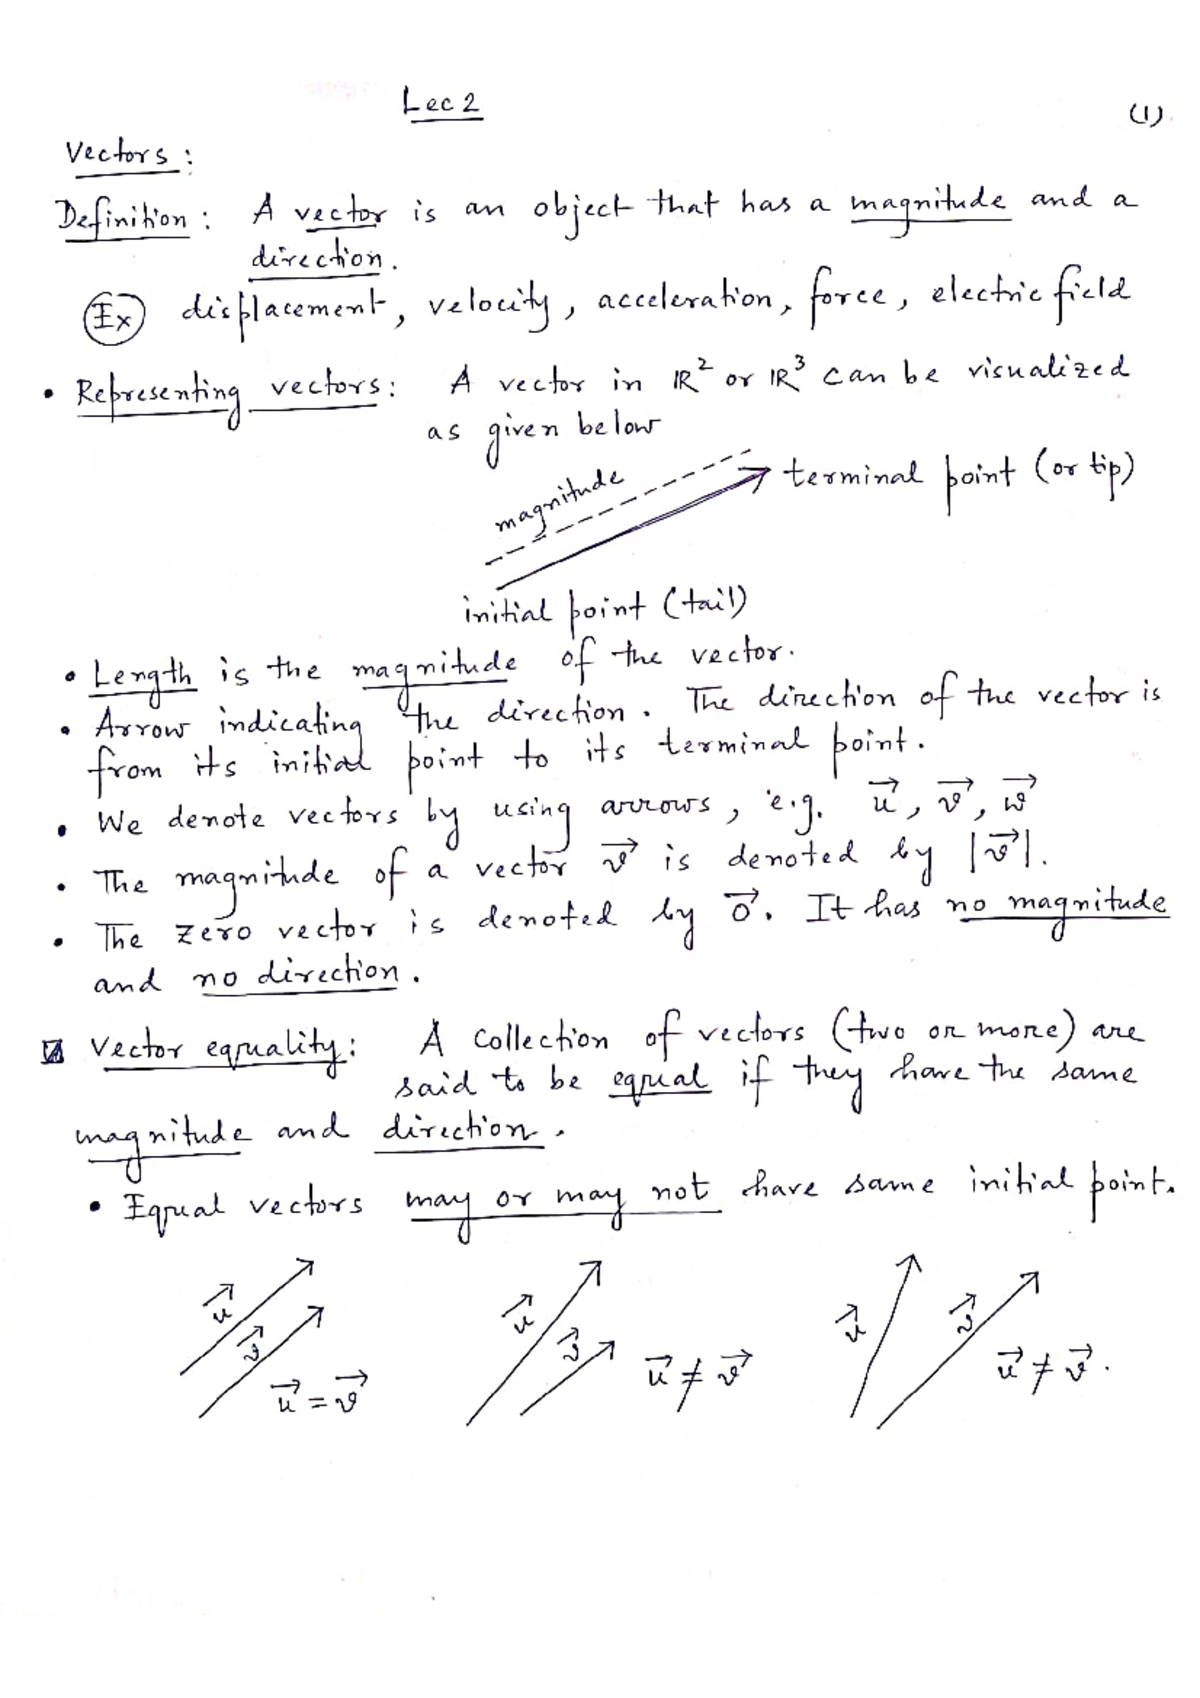 Lec 2
(1)
Vectors:
Definition: A vector is an object that has a magnitude and a
direction.
Ex displacement, velocity, acceleration, force, electric field
• Representing vectors: A vector in ℝ² or ℝ³ can be visualized
as given below
magnitude
terminal point (or tip)
initial point (tail)
• Length is the magnitude of the vector.
• Arrow indicating the direction. The direction of the vector is
from its initial point to its terminal point.
• We denote vectors by using arrows, e.g. u⃗, v⃗, w⃗
• The magnitude of a vector v⃗ is denoted by |v⃗|.
• The zero vector is denoted by 0⃗. It has no magnitude
and no direction.
Vector equality: A collection of vectors (two or more) are
said to be equal if they have the same
magnitude and direction.
• Equal vectors may or may not have same initial point.
u⃗ v⃗ u⃗ = v⃗
u⃗ v⃗ u⃗ ≠ v⃗
u⃗ v⃗ u⃗ ≠ v⃗.